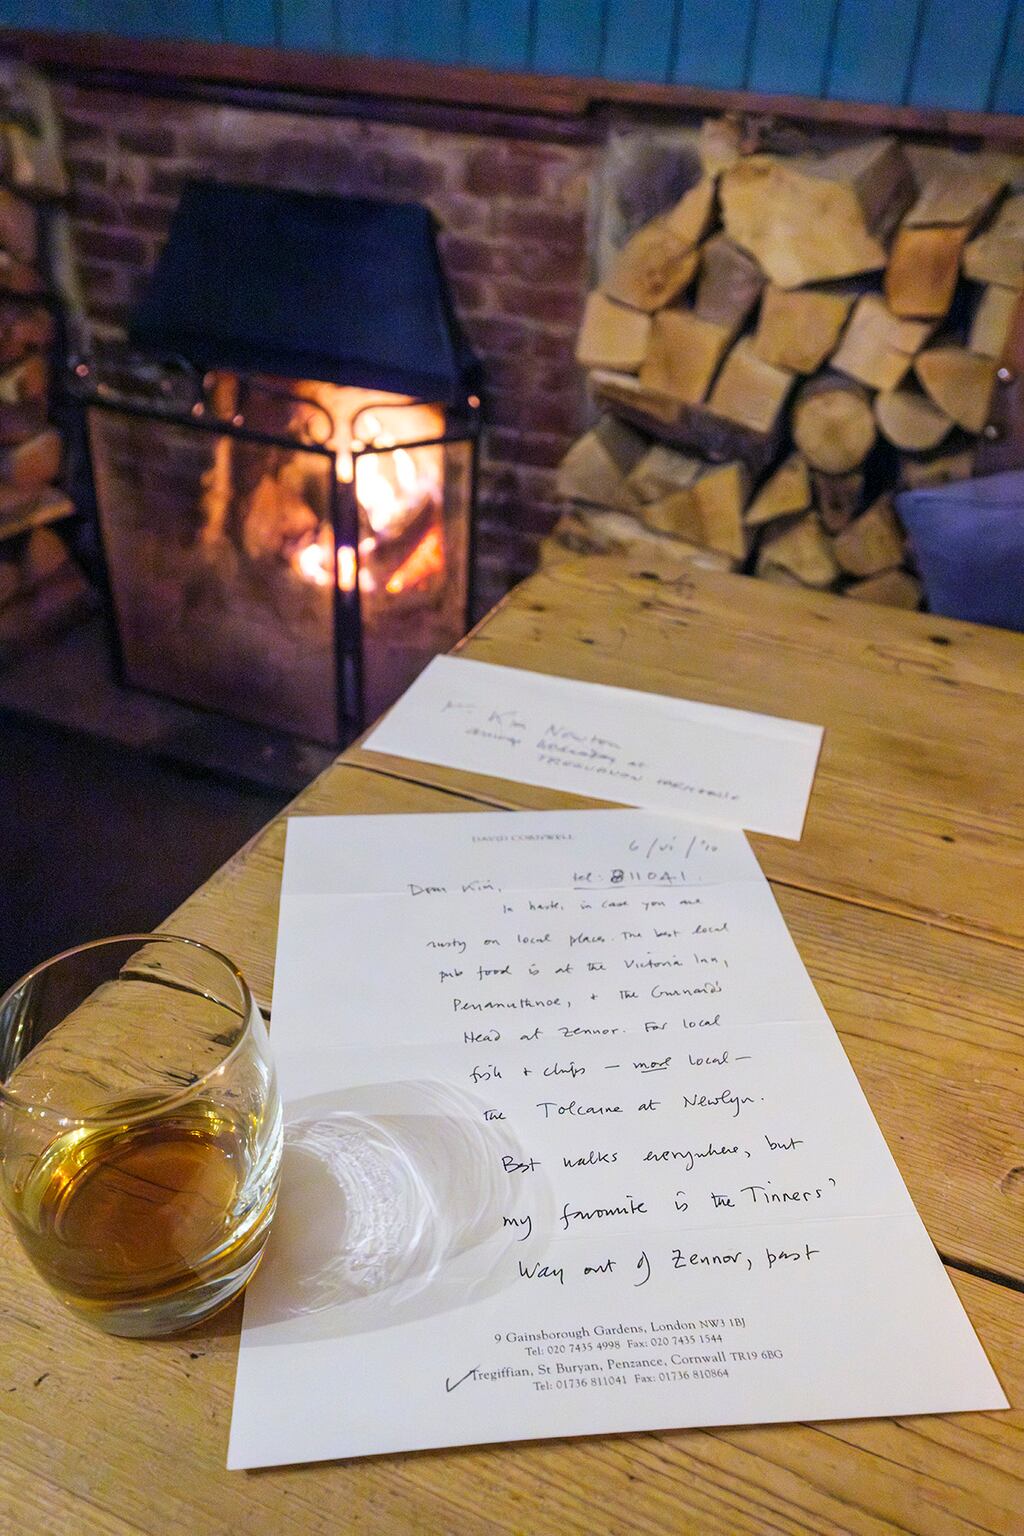 Kim Newton
arriving Wednesday at
DAVID CORNWELL
6/vi/'10
tel: 811041.
Dear Kim,
In haste, in case you are
rusty on local places. The best local
pub food is at the Victoria Inn,
Perranuthnoe, + the Gurnard's
Head at Zennor. For local
fish + chips – more local –
the Tolcarne at Newlyn.
Best walks everywhere, but
my favourite is the Tinners'
Way out of Zennor, past
9 Gainsborough Gardens, London NW3 1BJ
Tel: 020 7435 4998 Fax: 020 7435 1544
Tregiffian, St Buryan, Penzance, Cornwall TR19 6BG
Tel: 01736 811041 Fax: 01736 810864